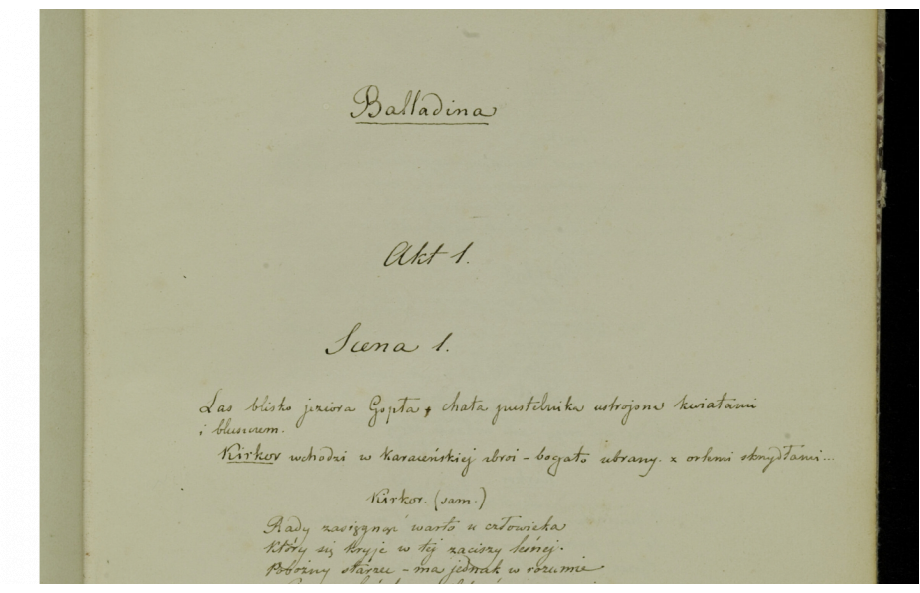 Balladina
Akt 1.
Scena 1.
Las blisko jeziora Gopła, chata pustelnika ustrojona kwiatami
i bluszczem.
Kirkor wchodzi w karaceńskiej zbroi - bogato ubrany. z orłemi skrzydłami...
Kirkor. (sam.)
Rady zasięgnąć warto u człowieka
Który się kryje w tej zaciszy leśnej.
Pobożny starzec - ma jednak w rozumie